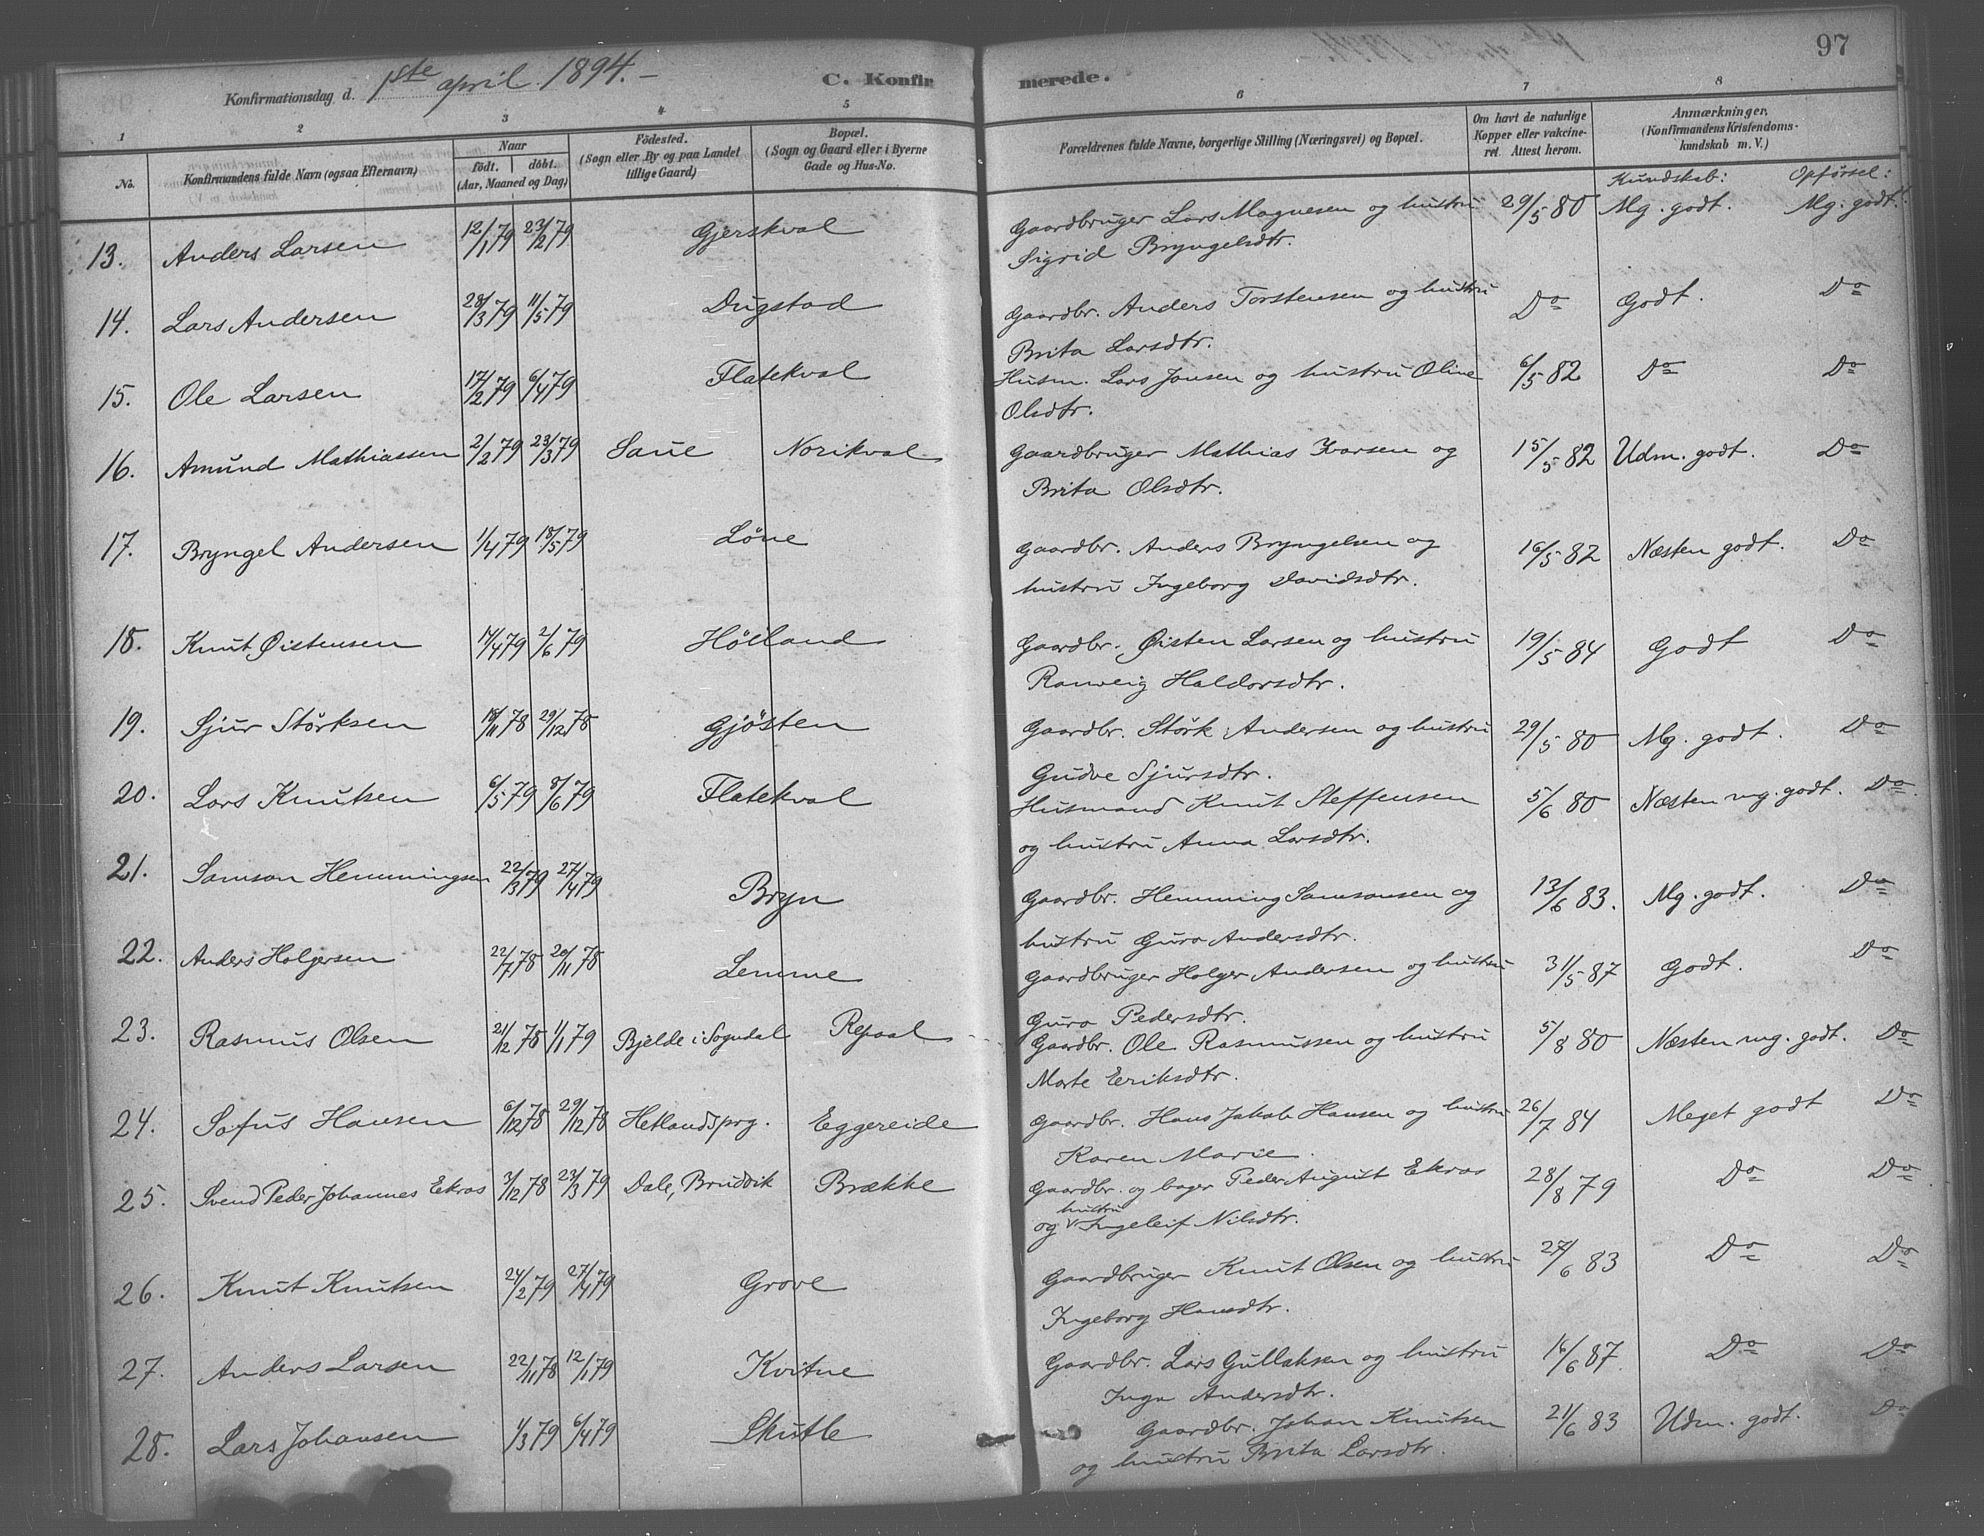 97
Konfirmationsdag d. 1ste april 1894.–
C. Konfirmerede.
1 2 3 4 5 6 7 8
No.
Konfirmandens fulde Navn (ogsaa Efternavn)
Naar
født. døbt.
(Aar, Maaned og Dag)
Fødested.
(Sogn eller By og paa Landet tillige Gaard)
Bopæl.
(Sogn og Gaard eller i Byerne Gade og Hus-No.
Forældrenes fulde Navne, borgerlige Stilling (Næringsvei) og Bopæl.
Om havt de naturlige Kopper eller vakcineret. Attest herom.
Anmærkninger.
(Konfirmandens Kristendomskundskab m. V.)
Kundskab: Opførsel:
13. Anders Larsen 12/1 79 23/2 79 Gjerskval Gaardbruger Lars Magnesen og hustru 29/5 80 Mg. godt. Mg. godt.
Sigrid Bryngelsdtr.
14. Lars Andersen 28/3 79 11/5 79 Dugstad Gaardbr. Anders Torstensen og hustru Do Godt. Do
Brita Larsdtr.
15. Ole Larsen 17/2 79 6/4 79 Flatekval Husm. Lars Jonsen og hustru Oline 6/5 82 Do Do
Olsdtr.
16. Amund Mathiassen 2/2 79 23/3 79 Saue Norikval Gaardbruger Mathias Ivarsen og 15/5 82 Udm. godt. Do
Brita Olsdtr.
17. Bryngel Andersen 1/4 79 18/5 79 Løne Gaardbr. Anders Bryngelsen og 16/5 82 Næsten godt. Do
hustru Ingeborg Davidsdtr.
18. Knut Øistensen 14/4 79 2/6 79 Høiland Gaardbr. Øisten Larsen og hustru 19/5 84 Godt Do
Ranveig Haldorsdtr.
19. Sjur Størksen 18/11 78 29/12 78 Gjøsten Gaardbr. Størk Andersen og hustru 29/5 80 Mg. godt. Do
Gudve Sjursdtr.
20. Lars Knutsen 6/5 79 8/6 79 Flatekval Husmand Knut Steffensen 5/6 80 Næsten mg. godt. Do
og hustru Anna Larsdtr.
21. Samson Hemmingsen 22/3 79 27/4 79 Bryn Gaardbr. Hemming Samsonsen og 13/6 83. Mg. godt. Do
hustru Guro Andersdtr.
22. Anders Holgersen 22/7 78 20/11 78 Lemme Gaardbruger Holger Andersen og hustru 31/5 87 Godt. Do
Guro Pedersdtr.
23. Rasmus Olsen 21/12 78 1/1 79 Bjelde i Sogndal Repaal Gaardbr. Ole Rasmussen og hustru 5/8 80 Næsten mg. godt. Do
Marte Eriksdtr.
24. Sofus Hansen 6/12 78 29/12 78 Hetlandsprg. Eggereide Gaardbr. Hans Jakob Hansen og hustru 26/7 84 Meget godt Do
Karen Marie.
25. Svend Peder Johannes Ekraas 3/12 78 23/3 79 Dale, Bruvik Brække Gaardbr. og bager Peder August Ekraas 28/8 79 Do Do
og hustru Ingeleif Nilsdtr.
26. Knut Knutsen 24/2 79 27/4 79 Grove Gaardbruger Knut Olsen og hustru 27/6 83 Do Do
Ingeborg Hansdtr.
27. Anders Larsen 22/11 78 12/1 79 Kvitne Gaardbr. Lars Gullaksen og hustru 16/6 87. Do Do
Inga Andersdtr.
28. Lars Johansen 1/3 79 6/4 79 Skutle Gaardbr. Johan Knutsen 21/6 83 Udm. godt. Do
og hustru Brita Larsdtr.